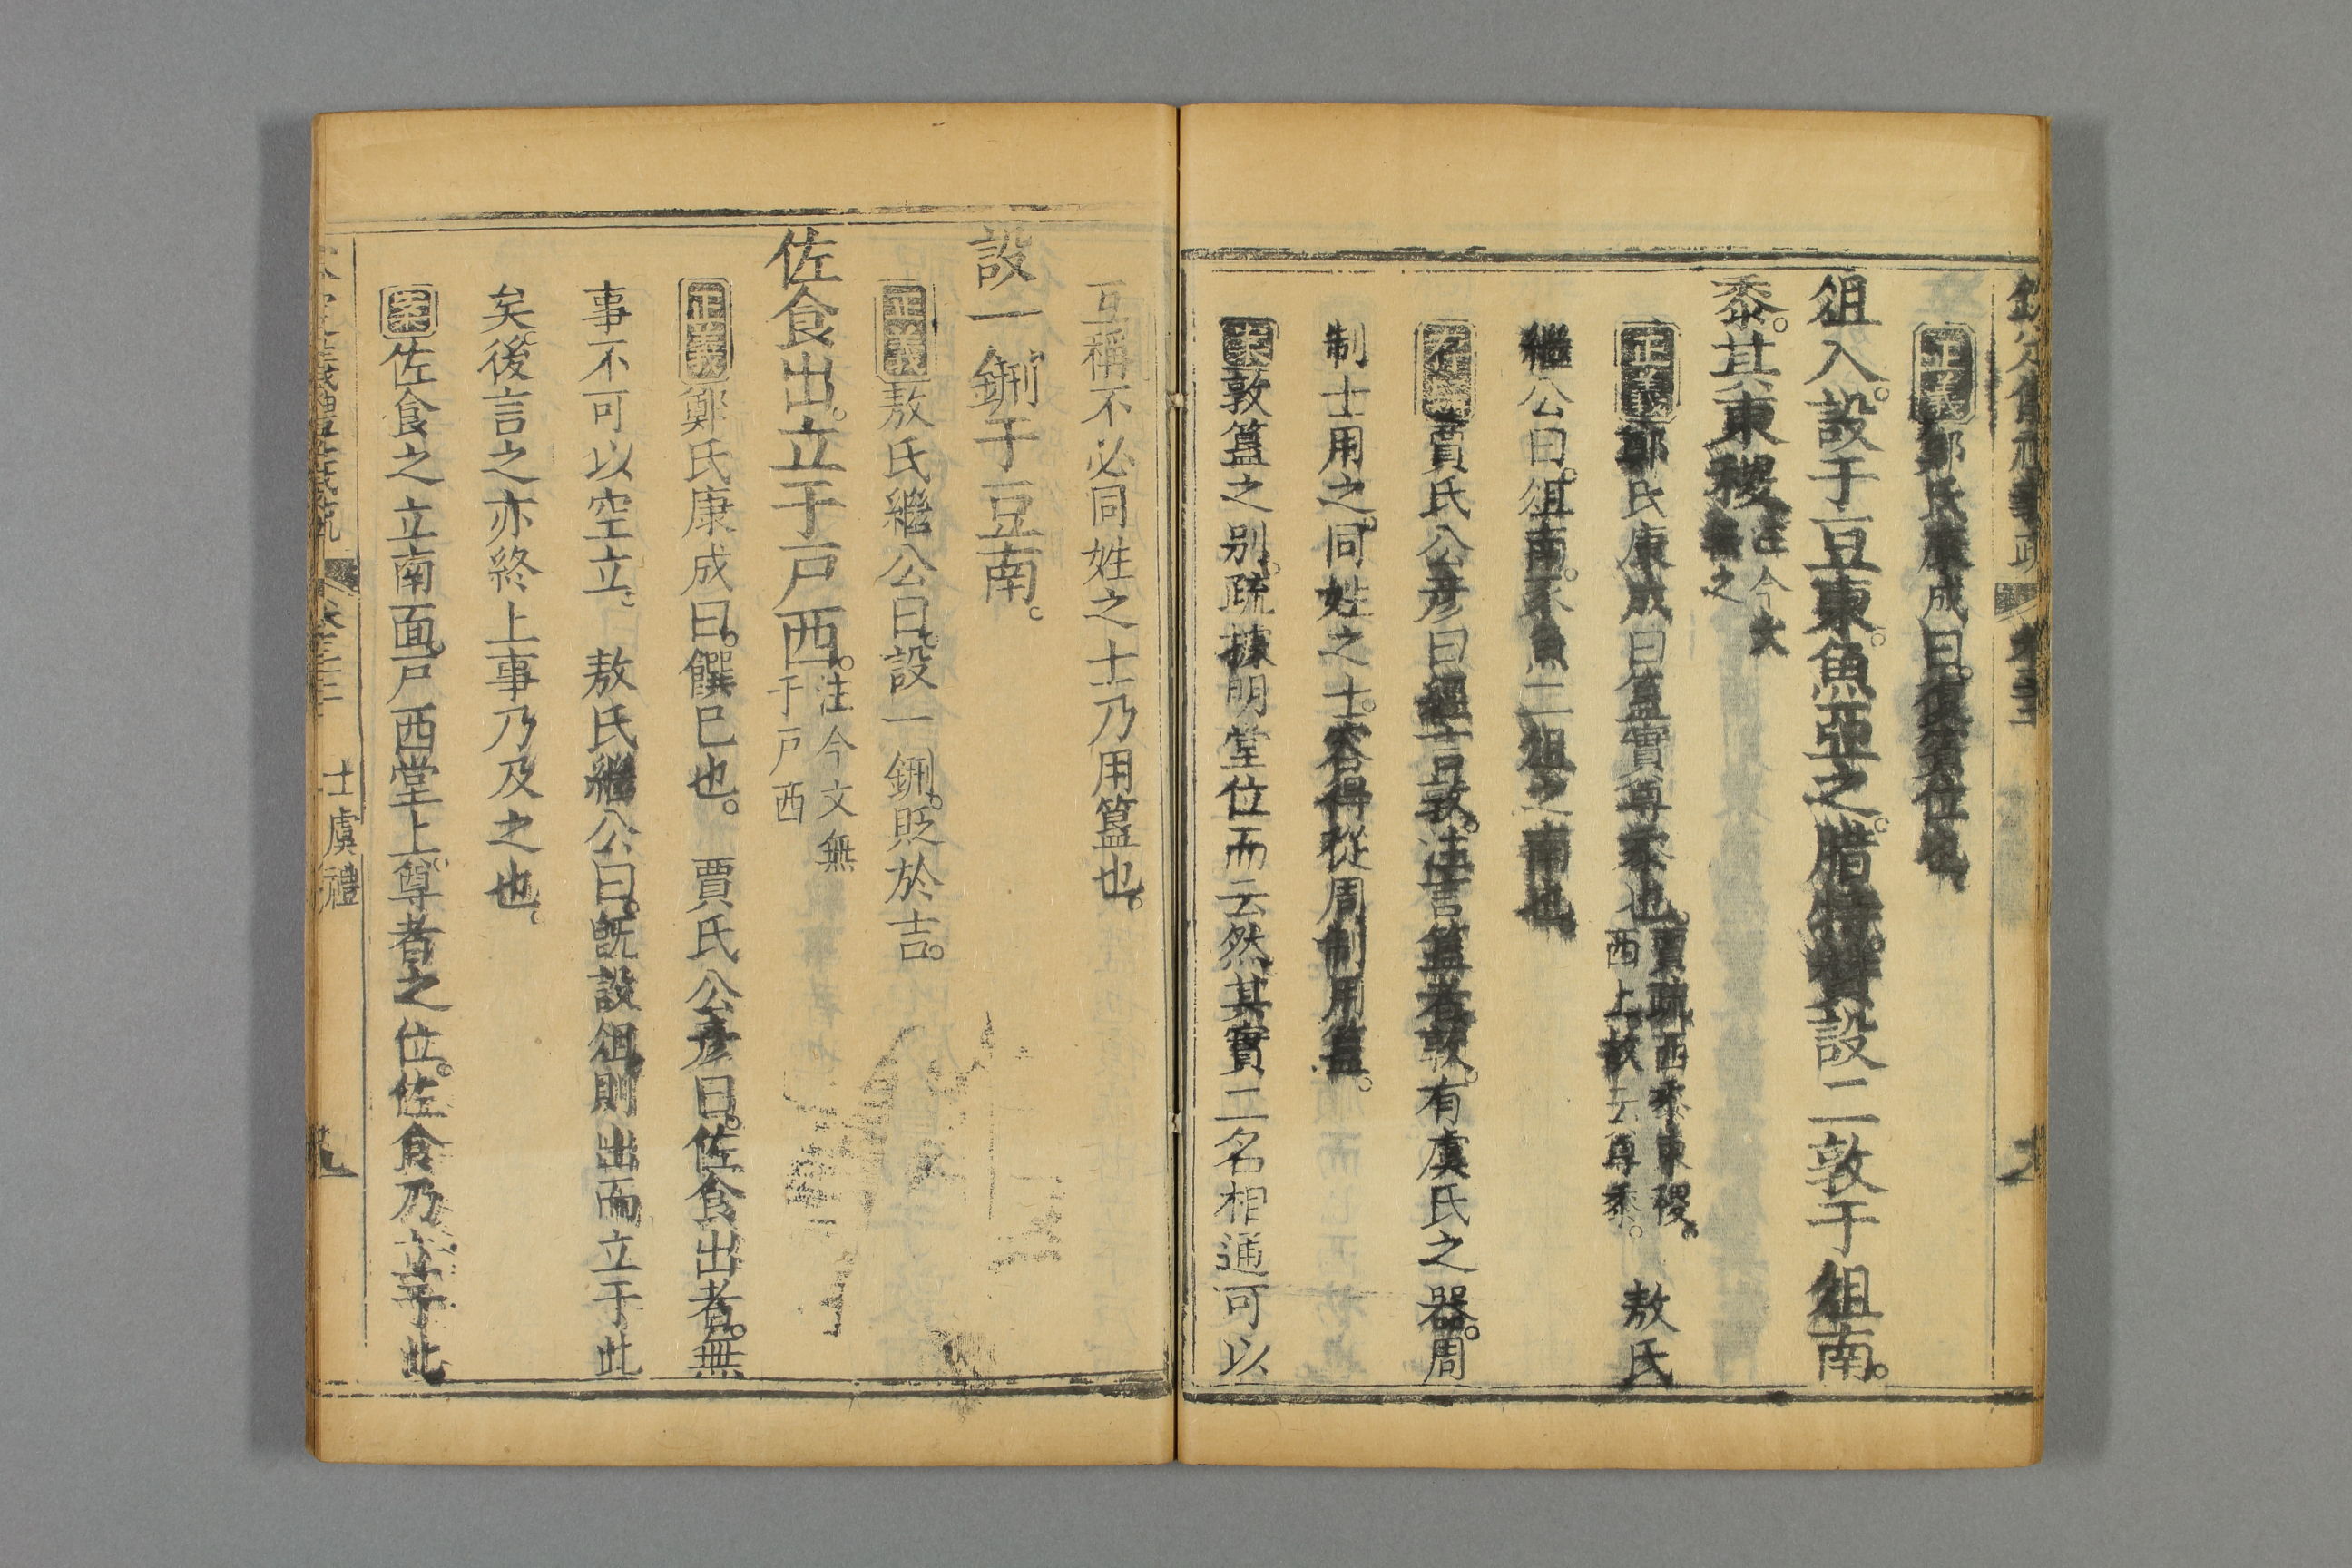 欽定儀禮義疏 卷三十三
正義鄭氏康成曰復賓位也
俎入。設于豆東。魚亞之。腊特。贊設二敦于俎南。
黍。其東稷。注今文無之
正義鄭氏康成曰簋實尊黍也。賈疏西黍東稷。西上故云尊黍。 敖氏
繼公曰。俎南。豕魚二俎之南也
存疑賈氏公彥曰經言敦。注言簋者敦。有虞氏之器。周
制士用之。同姓之士。容得從周制用簋。
案敦簋之别。疏據明堂位而云然其實二名相通可以
互稱不必同姓之士乃用簋也。
設一鉶于豆南。
正義敖氏繼公曰。設一鉶。貶於吉。
佐食出。立于戸西。注今文無于戸西
正義鄭氏康成曰。饌已也。 賈氏公彥曰。佐食出者。無
事不可以空立。 敖氏繼公曰。旣設俎則出而立于此
矣後言之亦終上事乃及之也。
案佐食之立南面戸西堂上尊者之位。佐食乃立于此
欽定儀禮義疏 卷三十三 士虞禮